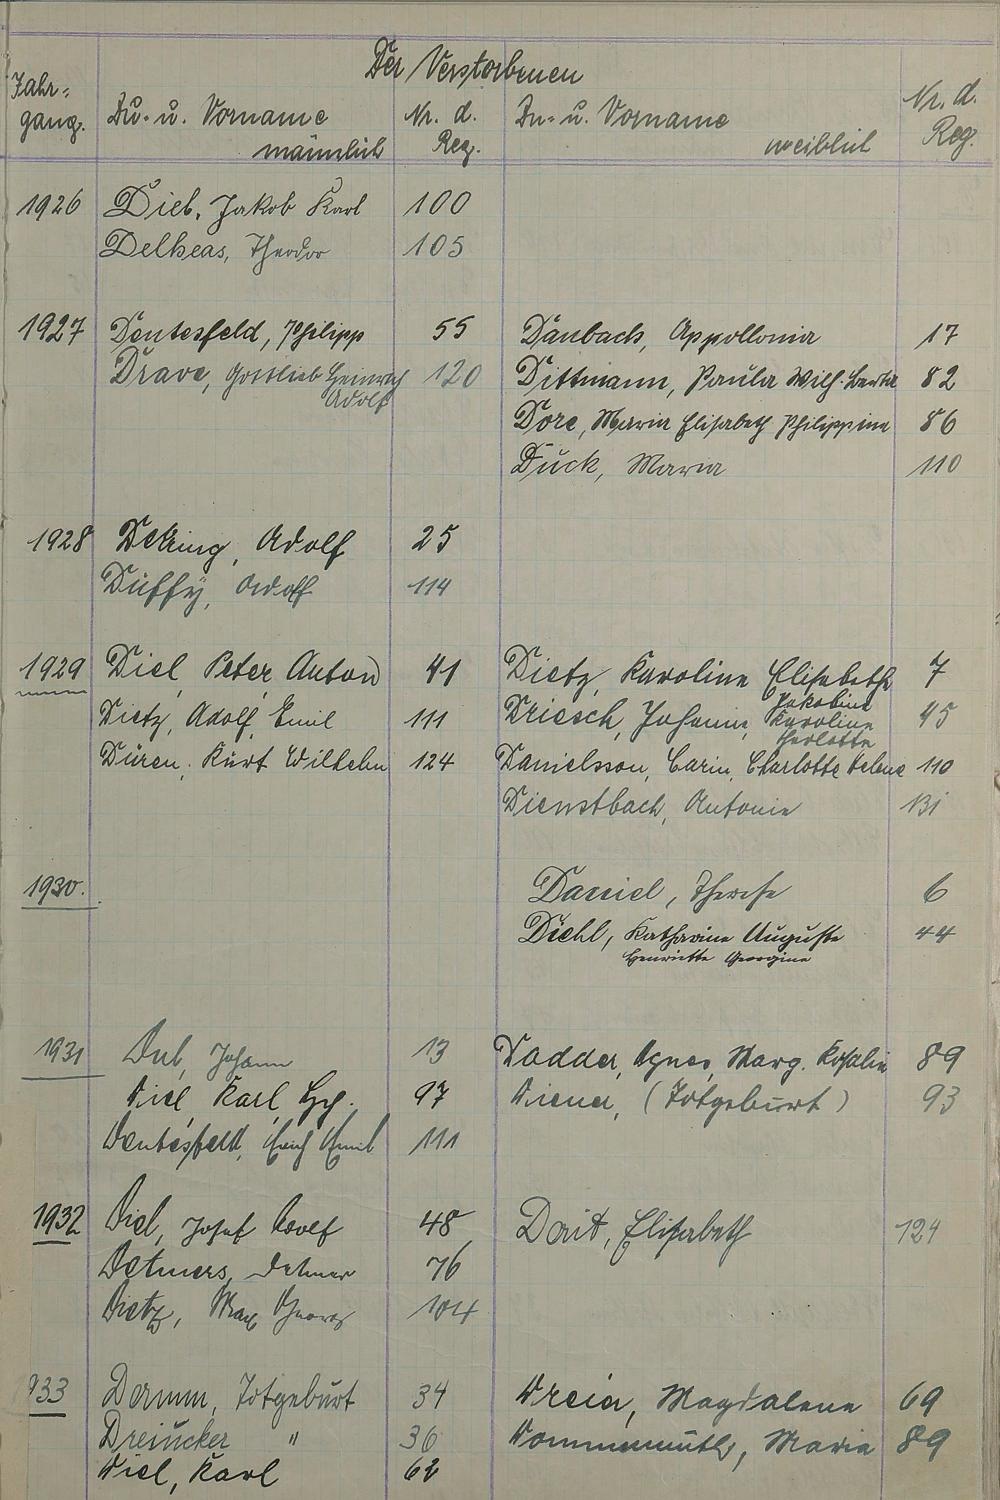 Der Verstorbenen
Jahr-
gang.
Zu- u. Vorname
männlich
Nr. d.
Reg.
Zu- u. Vorname
weiblich
Nr. d.
Reg.
1926 Diel, Jakob Karl 100
Delheas, Theodor 105
1927 Dentesfeld, Philipp 55 Danbach, Appollonia 17
Drave, Gottlieb Heinrich 120 Dittmann, Paula Wilh. Berta 82
Adolf
Dore, Maria Elisabeth Philippine 86
Duck, Maria 110
1928 Adolf 25
Duffy, Adolf 114
1929 Diel, Peter Anton 41 Dietz, Karoline Elisabeth 7
Jakobine
Dietz, Adolf, Emil 111 Driesch, Johanna, Karoline 45
Düren, Kurt Wilhelm 124 Danielsson, Carin, Charlotte Helene 110
Dienstbach, Antonie 131
1930. Daniel, Therese 6
Diehl, Katharine Auguste 44
Henriette Georgine
1931 Johann 13 Dadder, Agnes, Marg. Rosalie 89
Diel, Karl, Hch. 97 Diener, (Totgeburt) 93
Dentesfeld, Erich Emil 111
1932 Diel, Josef Adolf 48 Elisabeth 124
Detmers, Detmer 76
Dietz, Max Georg 104
933 Damm, Totgeburt 34 Magdalene 69
Dreiucker " 36 Dommermuth, Maria 89
Diel, Karl 62